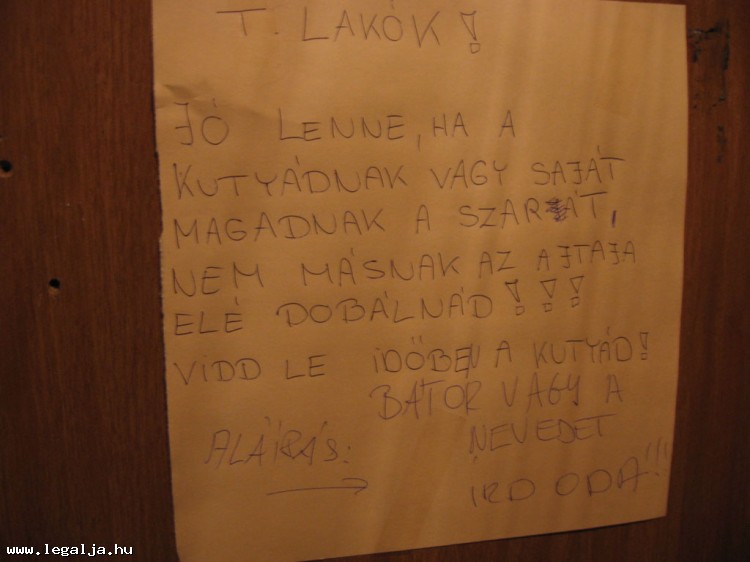 T. LAKÓK!
JÓ LENNE, HA A
KUTYÁDNAK VAGY SAJÁT
MAGADNAK A SZARÁT,
NEM MÁSNAK AZ AJTAJA
ELÉ DOBÁLNÁD!!!
VIDD LE IDŐBEN A KUTYÁD!
BÁTOR VAGY A
NEVEDET
ALÁÍRÁS:
ÍRD ODA!!!
www.legalja.hu